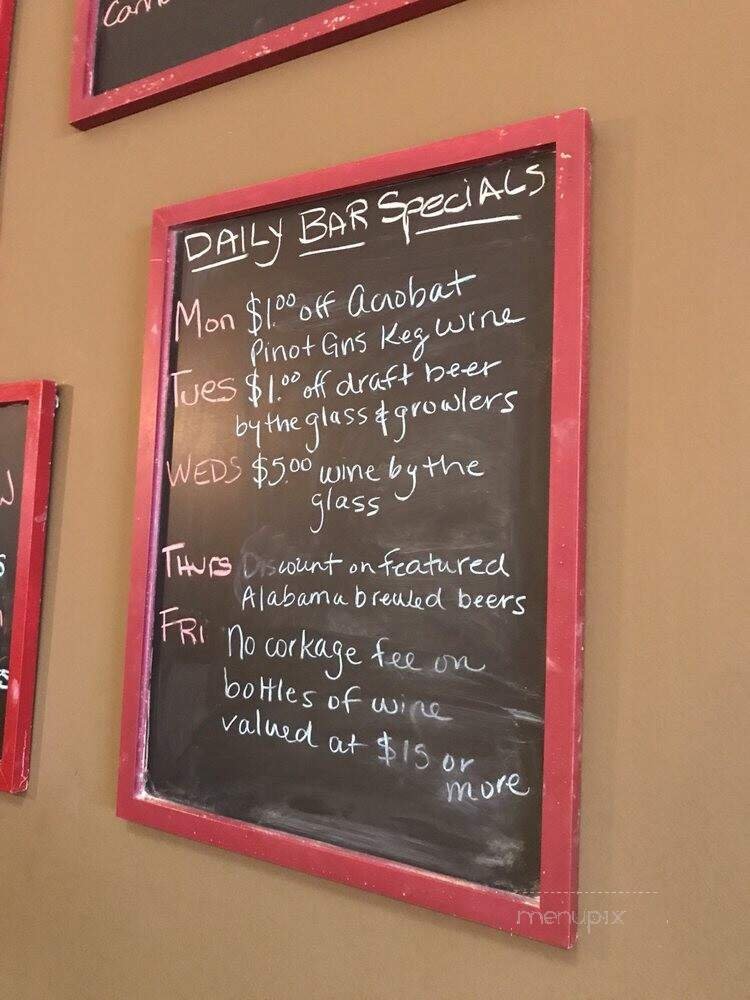 DAILY BAR SpeciALS
Mon $1.00 off Acrobat
Pinot Gris Keg wine
Tues $1.00 off draft beer
by the glass & growlers
WEDS $5.00 wine by the
glass
THURS Discount on featured
Alabama brewed beers
FRI No corkage fee on
bottles of wine
valued at $15 or
more
menupix